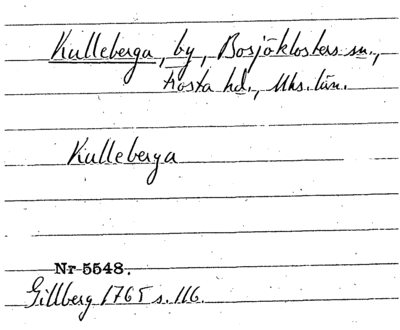 Kulleberga, by, Bosjöklosters sn.,
Frosta hd., Mhs. län.
Kulleberga
Nr 5548.
Gillberg 1765 s. 116.